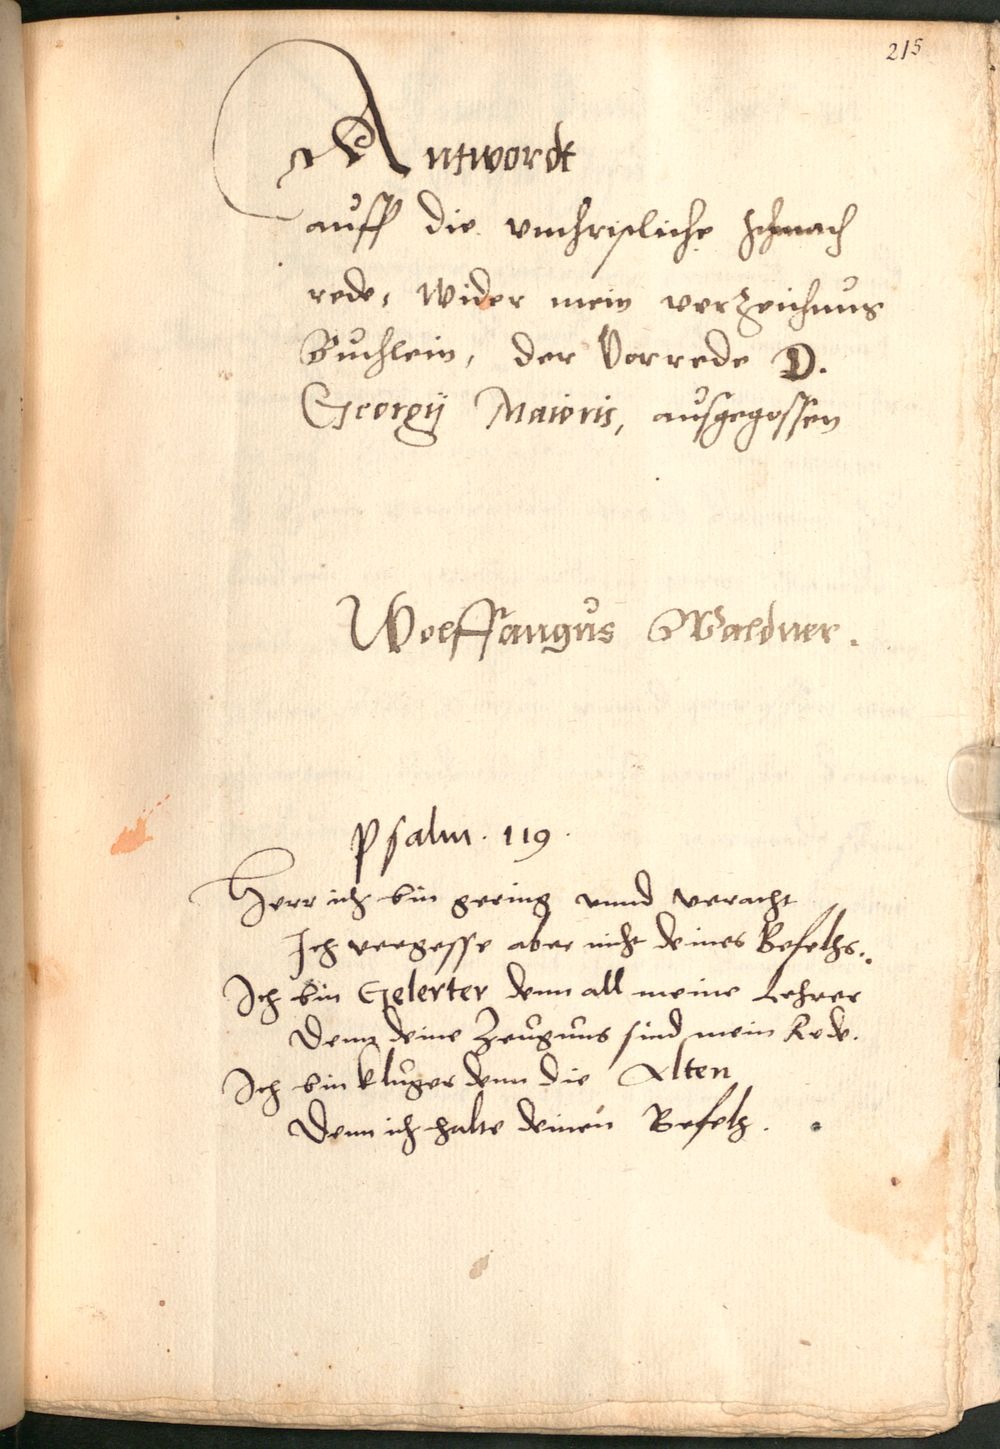 215
Antwordt
auff die vnchristliche schmach
rede, wider mein verzeichnus
Buchlein, der Vorrede D.
Georgij Maioris, ausgegossen
Wolffangus Waldner.
Psalm. 119.
Herr ich bin gering vnnd veracht
Ich vergesse aber nicht deines Befelhs.
Ich bin Gelerter denn all meine Lehrer
Denn deine Zeugnus sind mein Rede.
Ich bin kluger denn die Alten
Denn ich halte deinen Befelh.